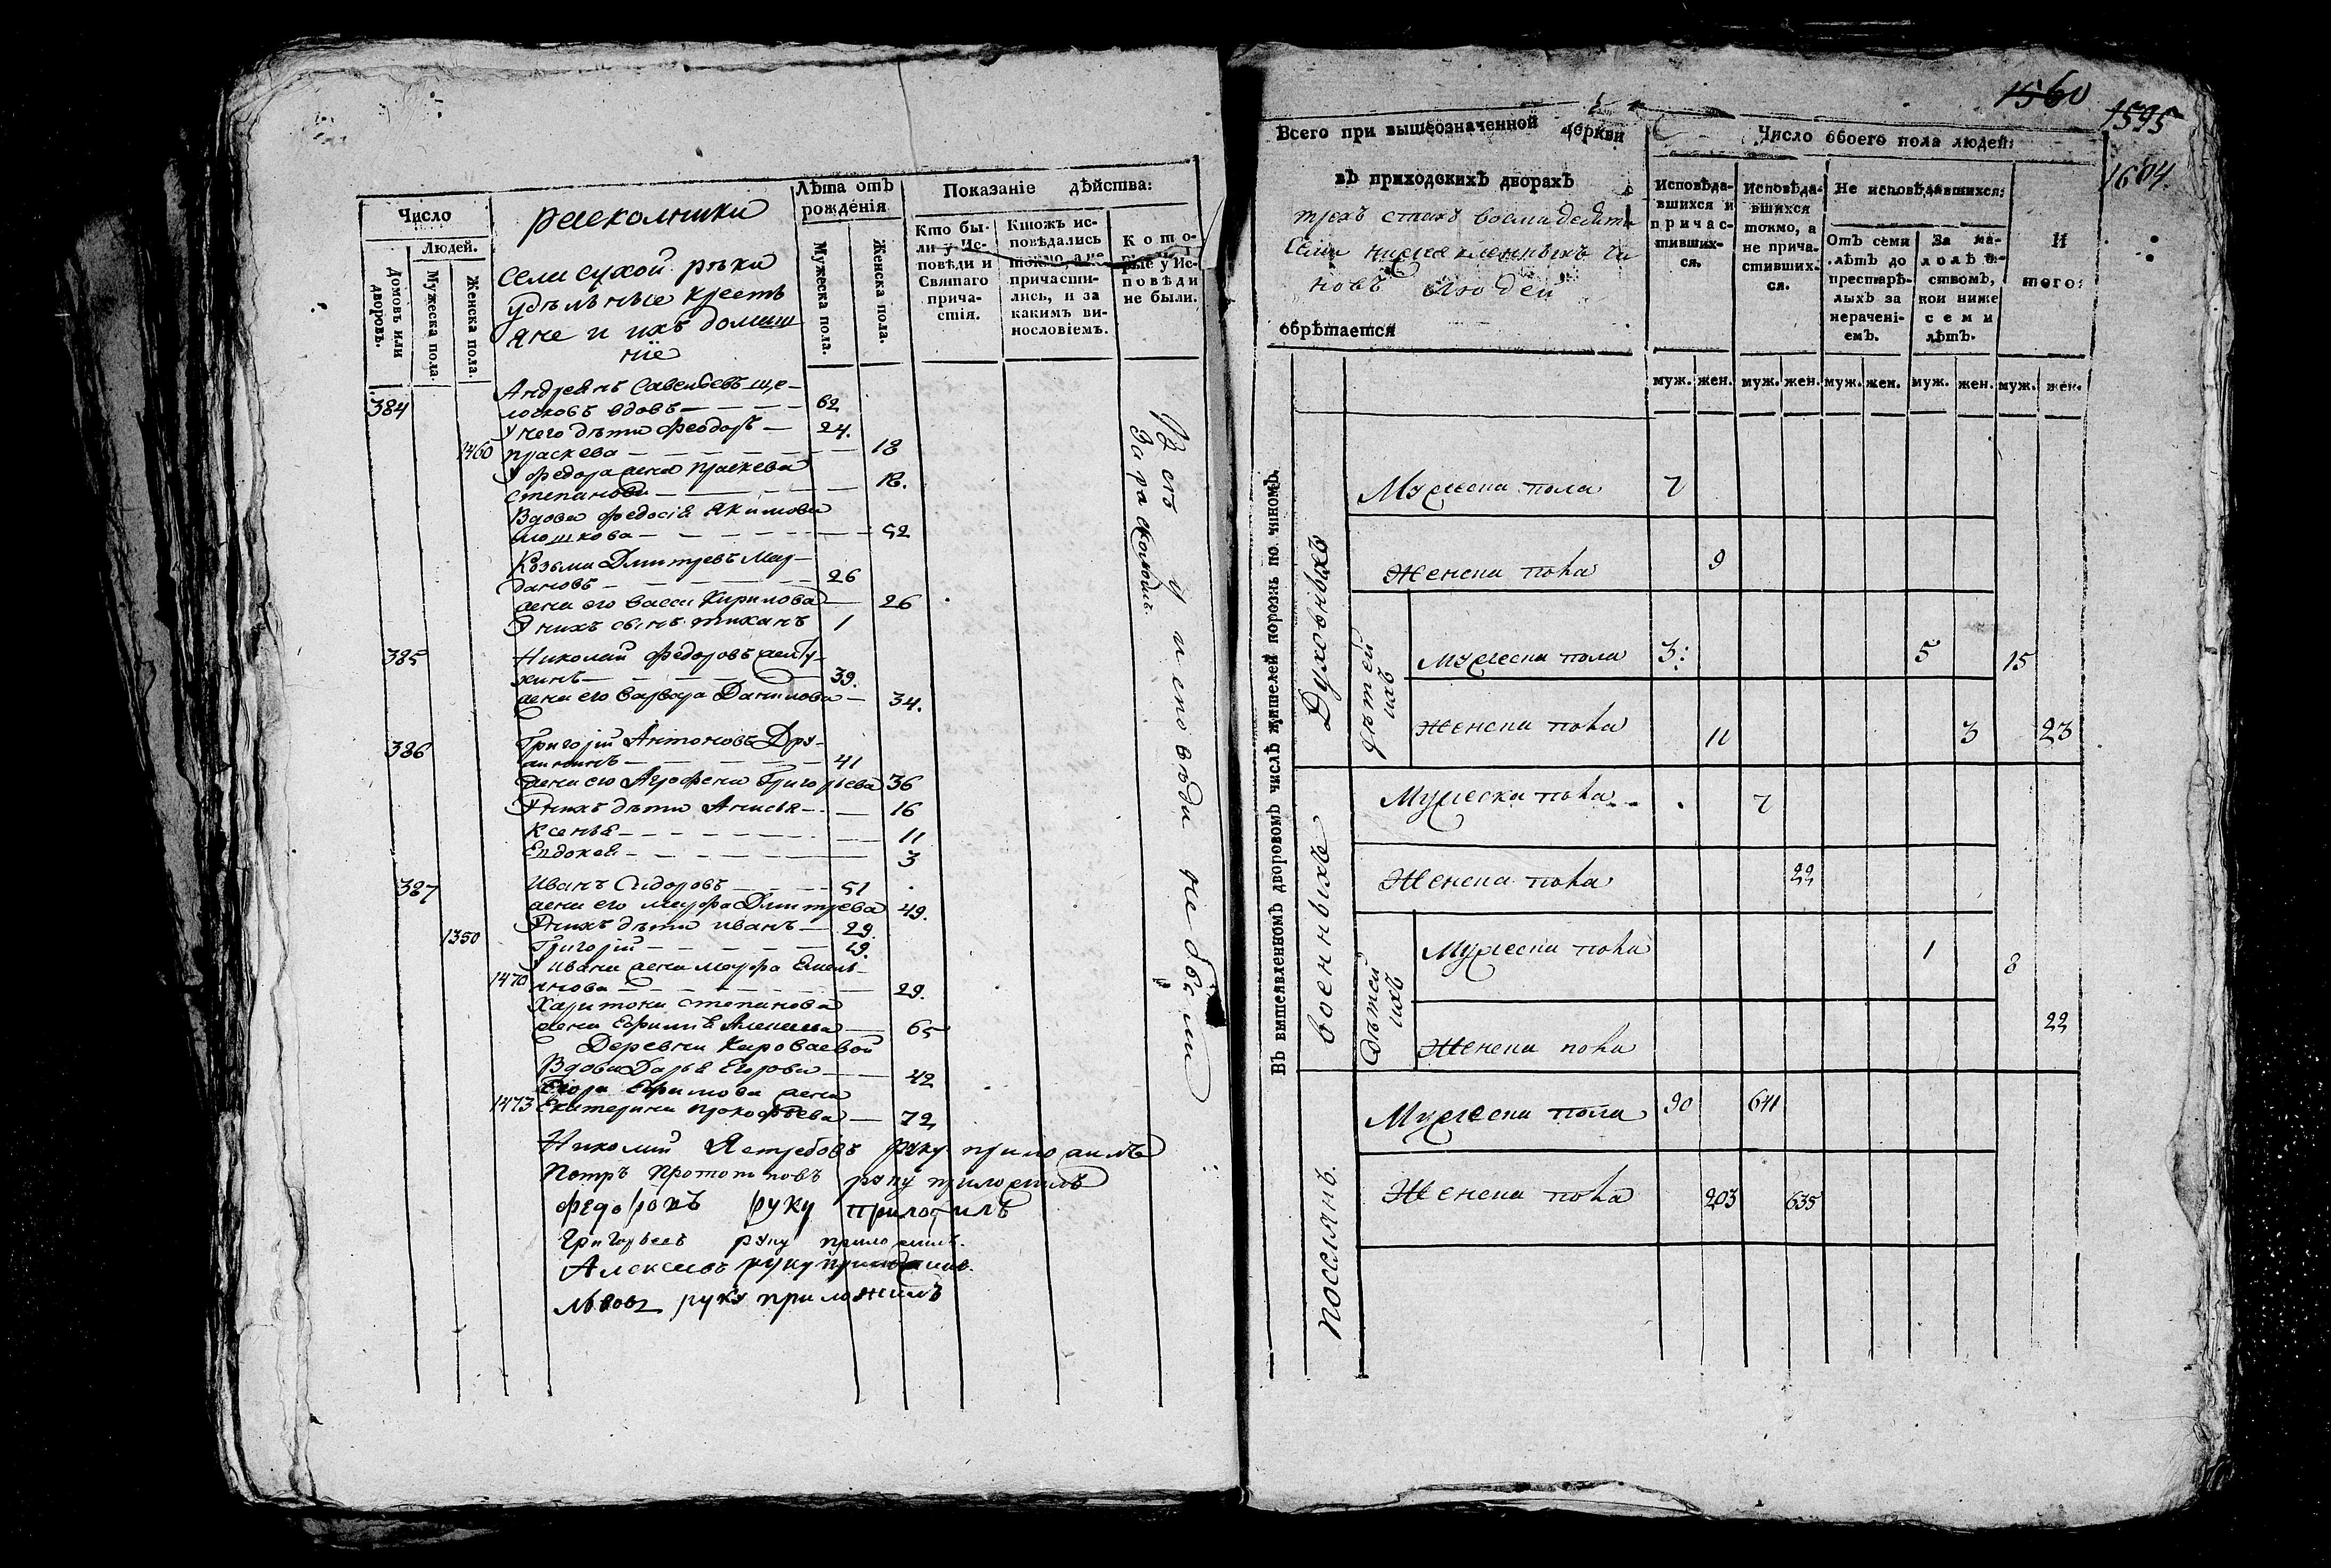 Число
Людей.
Домовъ или дворовъ.
Мужеска пола.
Женска пола.
раскольники
села сухой рѣки
удѣльные кресть
яне и ихъ домаш
ніе
Лѣта отъ рожденія
Мужеска пола.
Женска пола.
Показаніе дѣйства:
Кто бы-
ли у Ис-
повѣди и
Святаго
прича-
стія.
Ктожъ ис-
повѣдались
токмо, а не
причасти-
лись, и за
какимъ ви-
нословіемъ.
Кото-
рые у Ис-
повѣди
не были.
384
Андреянъ Савельевъ ще-
локовъ вдовъ 62
У него дѣти Феодоръ 24.
1460 праскева 18
У Федора жена праскева
степанова 18.
Вдова Федосія Якимова
52
Козьма Дмитревъ
26
жена его Васса Кирилова 26
У нихъ сынъ тиханъ 1
385 Николай Федоровъ
39.
жена его Варвара Данилова 34.
386 Григорій Антоновъ Дру-
жининъ 41
жена его Агрофена Григорьева 36
У нихъ дѣти Анисья 16
Ксенья 11
Евдокея 3
387 Иванъ Сидоровъ 51
жена его марфа Дмитрева 49.
У нихъ дѣти иванъ 29.
1350 Григорій 19.
У ивана жена марфа Емель-
1470 янова 29.
Харитона степанова
жена Ефимія 65
Деревни Караваевой
Вдова Дарья Егорова 42
Егора Ефимова жена
1473 Екатерина прокофьева 72
У сей исповѣди не были
За расколомъ.
Николай Ястребовъ руку приложилъ
Петръ Протопоповъ руку приложилъ
Федоровъ руку приложилъ
Григорьевъ руку приложилъ.
Алексѣевъ руку приложилъ.
Львовъ руку приложилъ
1560
1595
1604.
Всего при вышеозначенной церкви
въ приходскихъ дворахъ
трехъ стахъ восмидесяти
семи нижеявленныхъ чи
новъ людей
обрѣтается
Число обоего пола людей:
Исповѣда-
вшихся и
причас-
тивших-
ся.
Исповѣда-
вшихся
токмо, а
не прича-
стивших-
ся.
Не исповѣдавшихся:
Отъ семи
лѣтъ до
престарѣ-
лыхъ за
нерачені-
емъ.
За ма-
лолѣт-
ствомъ,
кои ниже
семи
лѣтъ.
И
того:
муж. жен. муж. жен. муж. жен. муж. жен. муж. жен.
Въ вышеявленномъ дворовомъ числѣ жителей порознь по чиномъ.
Духовныхъ
Мужеска пола 7
Женска пола 9
дѣтей ихъ
Мужеска пола 3: 5 15
Женска пола 11 3 23
военныхъ
Мужеска пола 7
Женска пола 22
Дѣтей ихъ
Мужеска пола 1 8
Женска пола 22
поселянъ.
Мужеска пола 90 641
Женска пола 203 635